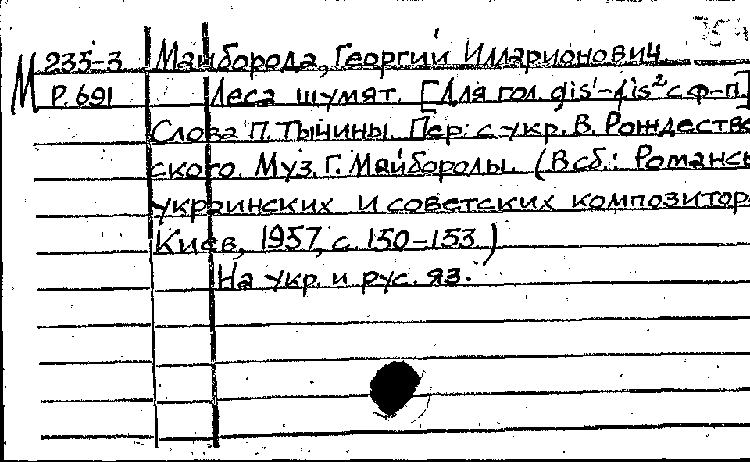 М 235-3 Майборода, Георгий Илларионович
Р. 691 Леса шумят. [Для гол. gis¹-fis² с ф-п]
Слова П. Тычины. Пер. с укр. В. Рождестве
ского. Муз. Г. Майбороды. (В сб.: Романсы
украинских и советских композитор
Киев, 1957, с. 150-153.)
На укр. и рус. яз.